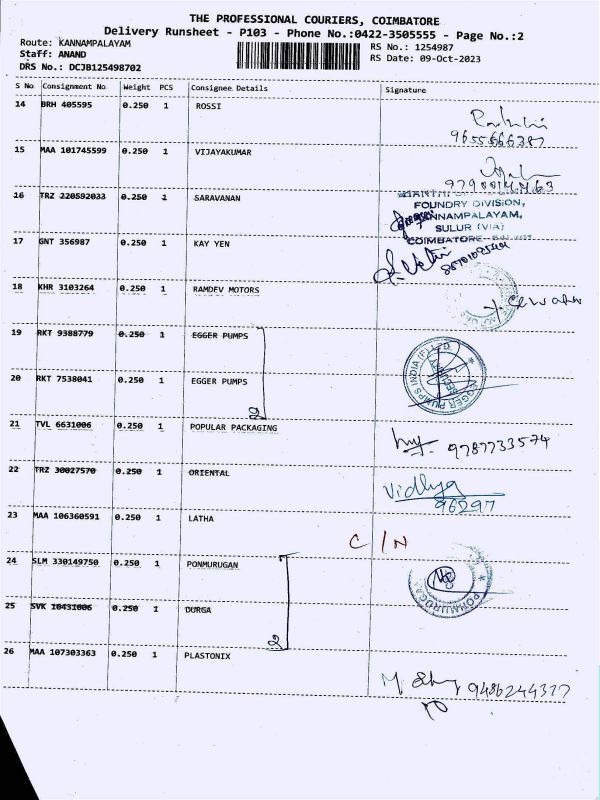 THE PROFESSIONAL COURIERS, COIMBATORE
Delivery Runsheet - P103 - Phone No.:0422-3505555 - Page No.:2
Route: KANNAMPALAYAM
RS No.: 1254987
Staff: ANAND
RS Date: 09-Oct-2023
DRS No.: DCJB125498702
S No Consignment No Weight PCS Consignee Details Signature
14 BRH 405595 0.250 1 ROSSI
9655666387
15 MAA 101745599 0.250 1 VIJAYAKUMAR
16 TRZ 220592033 0.250 1 SARAVANAN
FOUNDRY DIVISION,
KANNAMPALAYAM,
SULUR (VIA)
COIMBATORE
17 GNT 356987 0.250 1 KAY YEN
18 KHR 3103264 0.250 1 RAMDEV MOTORS
19 RKT 9388779 0.250 1 EGGER PUMPS
EGGER PUMPS INDIA (P) LTD
20 RKT 7538041 0.250 1 EGGER PUMPS
2
21 TVL 6631006 0.250 1 POPULAR PACKAGING
9787733574
22 TRZ 30027570 0.250 1 ORIENTAL
Vidhya
96297
23 MAA 106360591 0.250 1 LATHA
C/N
24 SLM 330149750 0.250 1 PONMURUGAN
25 SVK 10431006 0.250 1 DURGA
2
26 MAA 107303363 0.250 1 PLASTONIX
9486244377